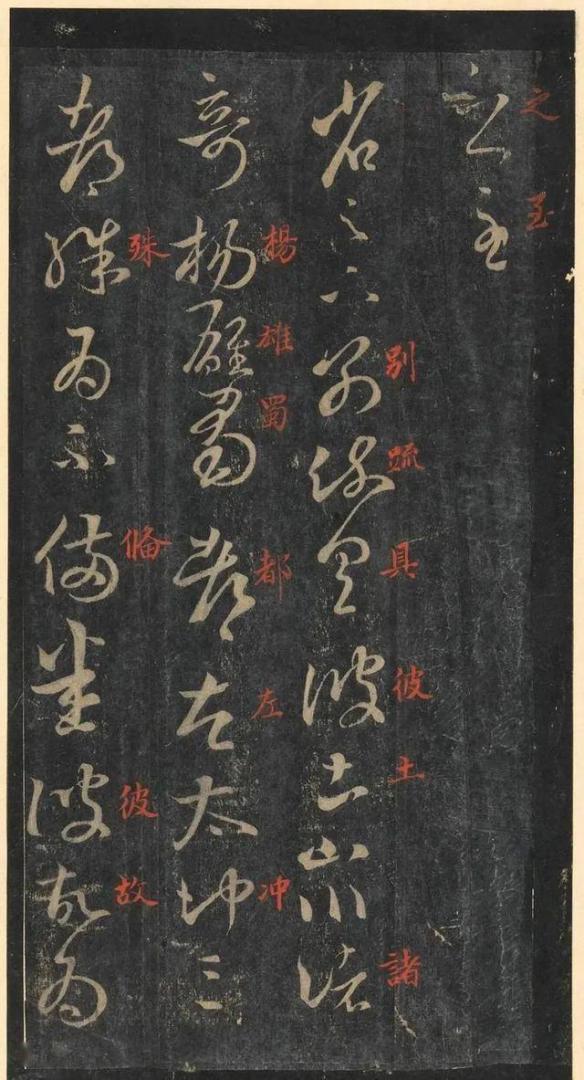 之至
之至
别踈具彼土諸
省足下别疏具彼土山川諸
楊雄蜀都左冲
奇楊雄蜀都左太冲三
殊俻彼故
都殊為不備悉彼故為